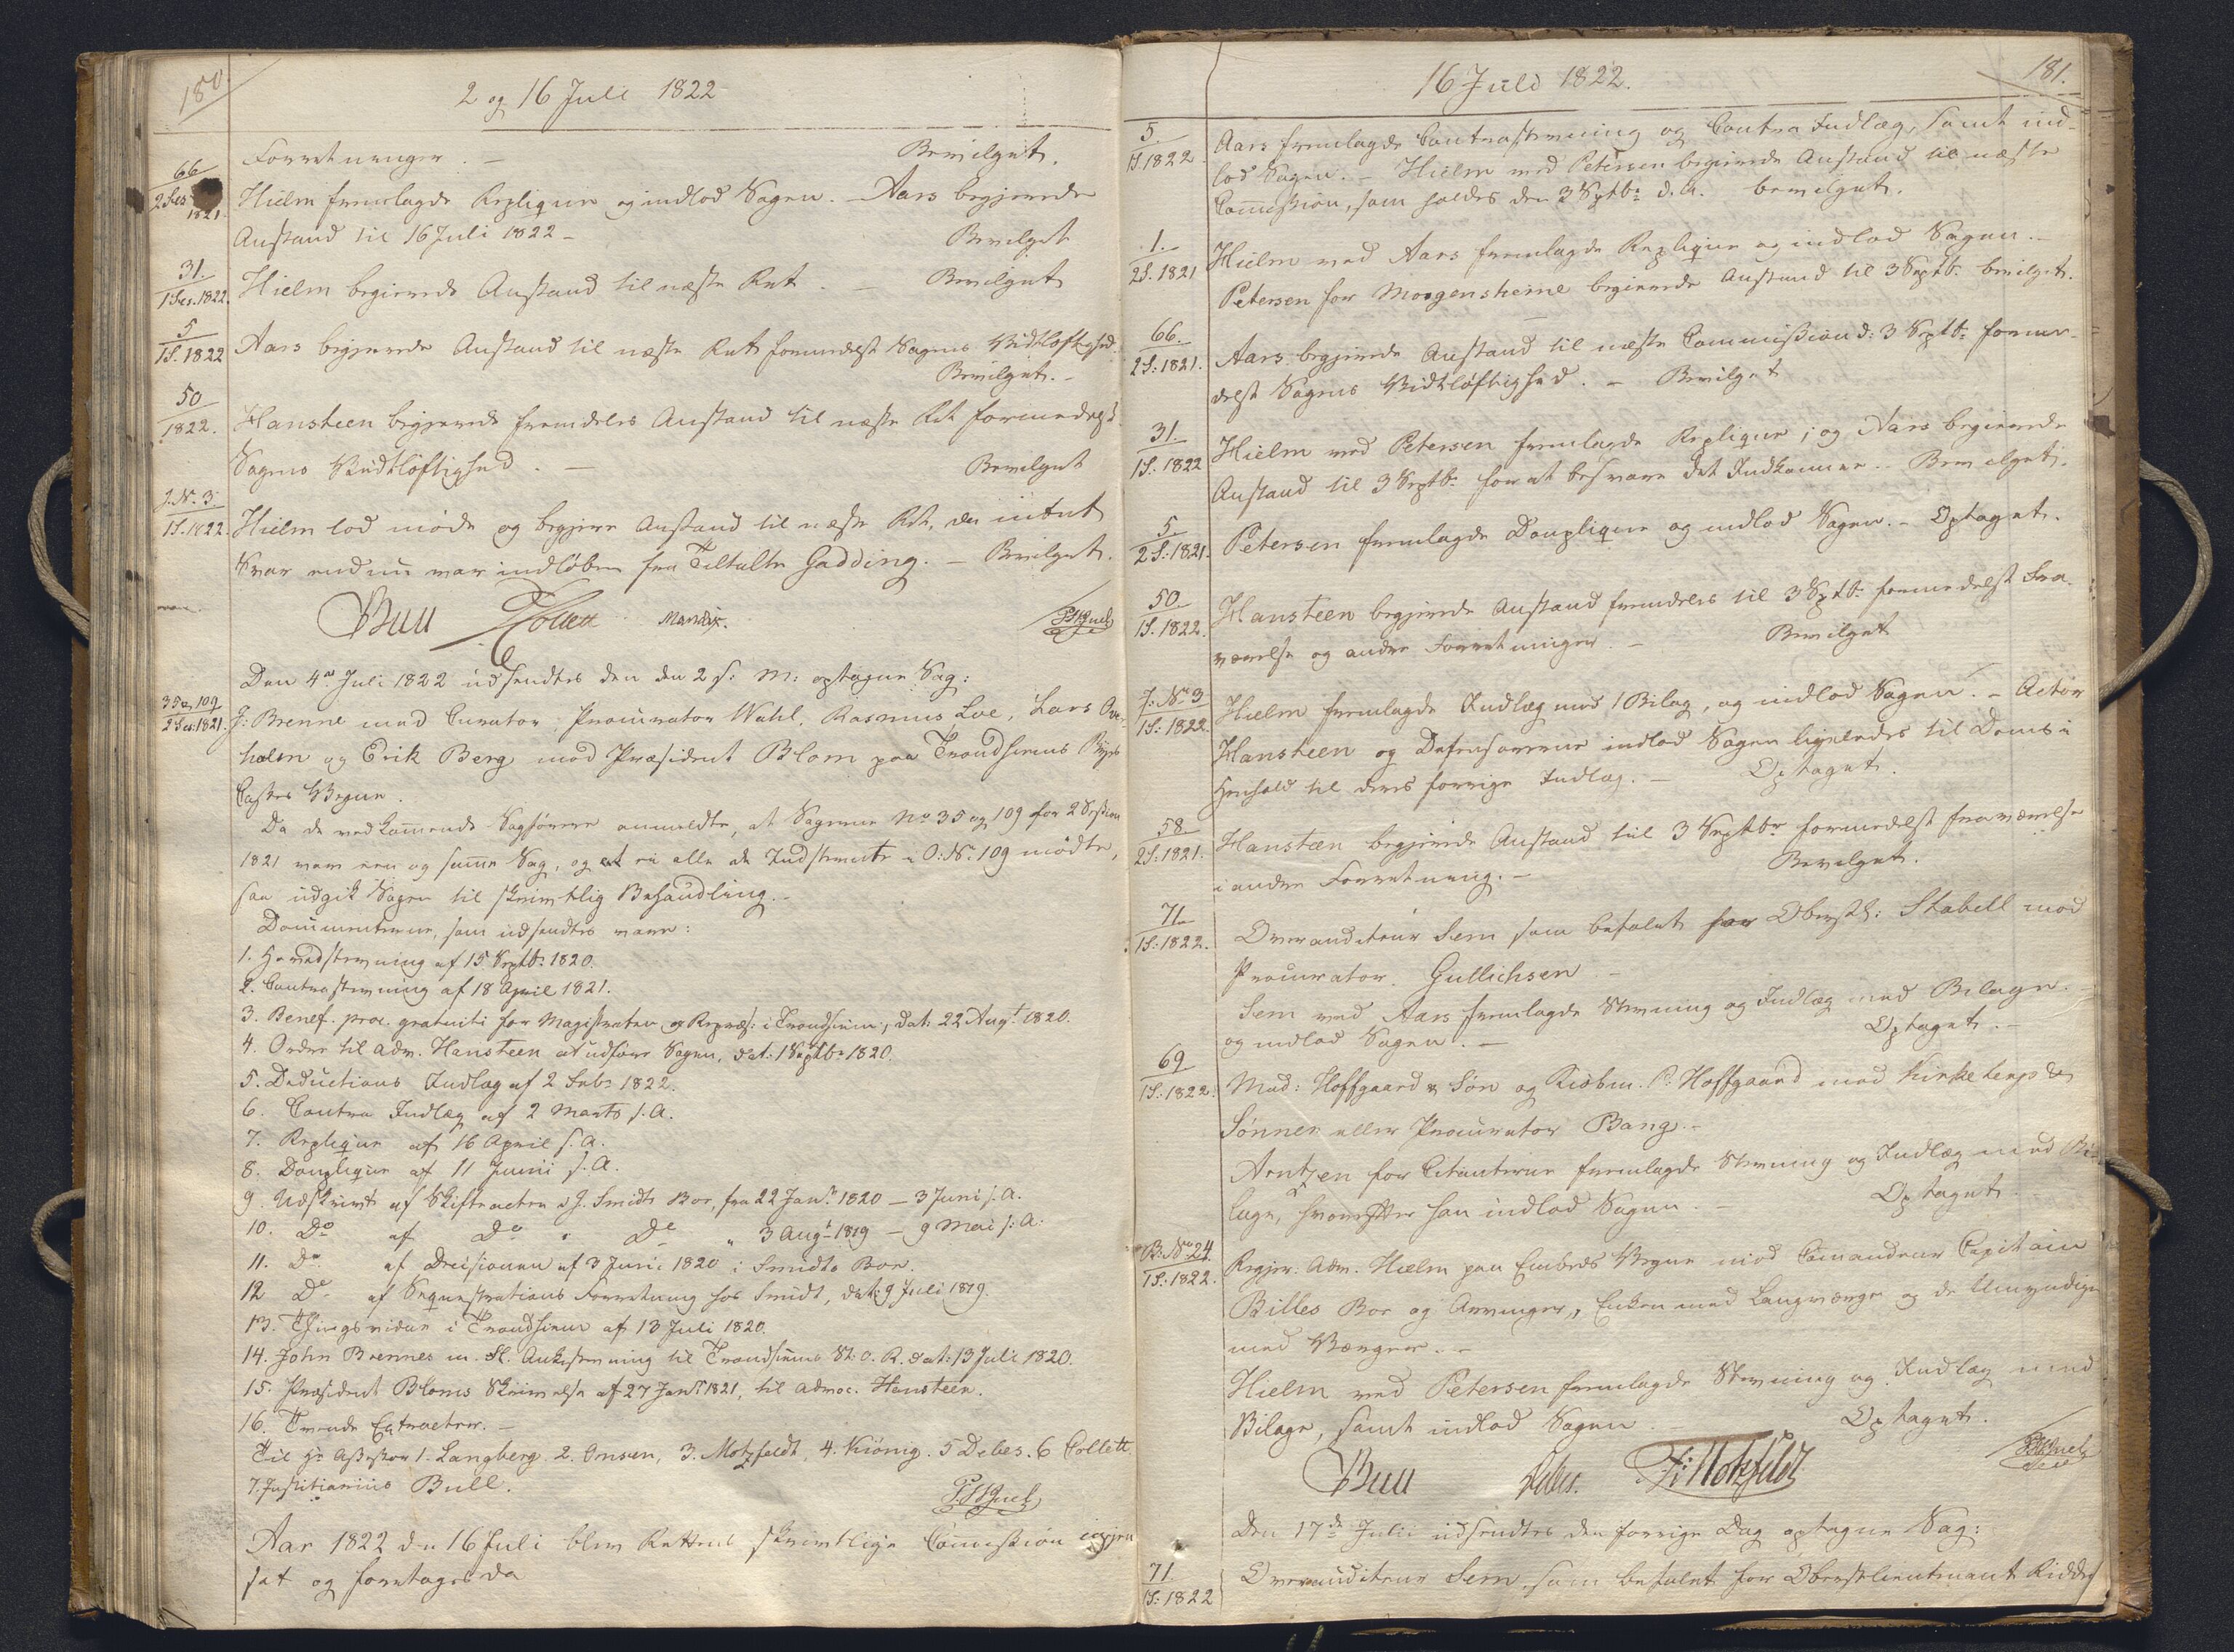 180
2 og 16 Juli 1822
Forretninger. - Bevilget.
66
2 Ses 1821.
Hielm fremlagde Replique og indlod Sagen. - Aars begjerede
Anstand til 16 Juli 1822 - Bevilget
31.
1 Ses. 1822.
Hielm begierede Anstand til næste Ret. - Bevilget
5
1S. 1822
Aars begjerede Anstand til næste Ret formedelst Sagens Vidtløftighed.
Bevilget. -
50
1822.
Hansteen begjerede fremdeles Anstand til næste Ret formedelst
Sagens Vidtløftighed. - Bevilget
J. N. 3
1S. 1822.
Hielm lod møde og begjere Anstand til næste Ret, da intet
Svar endnu var indløben fra Tiltalte Gadding. - Bevilget.
Bull Collett Mandix.
Den 4de Juli 1822 udsendtes den den 2 s: M: optagne Sag:
35 og 109
2 Ses: 1821.
J: Brenne med Curator Procurator Wahl, Rasmus Loe, Lars Over-
holm og Erik Berg mod Præsident Blom paa Trondhiems Byes
Casses Vegne.
Da de vedkommende Sagførere anmeldte, at Sagerne No 35 og 109 for 2 Session
1821 vare een og samme Sag, og at ei alle de Indstevnte i O: N. 109 mødte,
saa udgik Sagen til skrivtlig Behandling. -
Documenterne, som udsendtes vare:
1. Hovedstevning af 15 Septbr 1820.
2. Contrastevning af 18 April 1821.
3. Benef. proc. gratuiti for Magistraten og Repræs: i Trondhiem, dat: 22 Augt. 1820.
4. Ordre til Adv. Hansteen at udføre Sagen, dat: 1 Septbr 1820.
5. Deductions Indlæg af 2 Febr 1822.
6. Contra Indlæg af 2 Marts s. A.
7. Replique af 16 April s. A.
8. Douplique af 11 Junii s. A.
9. Udskrivt af Skifteacten i J. Smidts Boe, fra 22 Janr 1820 - 3 Juni s. A.
10. Do af Do i Do " 3 Augt 1819 - 9 Mai s: A:
11. Do af Decisionen af 3 Juni 1820 i Smidts Boe.
12 Do af Sequestrations Forretning hos Smidt, dat: 9 Juli 1819.
13. Thingsvidne i Trondhiem af 13 Juli 1820.
14. John Brennes m. fl. Ankestevning til Trondhiems St: O. R. dat: 13 Juli 1820.
15. Præsident Bloms Skrivelse af 27 Janr 1821, til Advoc. Hansteen.
16. Trende Extracter. -
Til Hr Assessor 1. Langberg. 2. Omsen, 3. Motzfeldt, 4. Kiönig. 5 Debes. 6 Collett.
7. Justitiarius Bull.
Aar 1822 den 16 Juli blev Rettens skrivtlige Commission igjen
sat og foretoges da
16 Juli 1822.
181.
5
1S. 1822.
Aars fremlagde Contrastevning og Contra Indlæg, samt ind-
lod Sagen. - Hielm ved Petersen begierede Anstand til næste
Commission, som holdes den 3 Septbr d. A. bevilget.
1. -
2S. 1821
Hielm ved Aars fremlagde Replique og indlod Sagen. -
Petersen for Morgenstierne begierede Anstand til 3 Septbr bevilget.
66.
2S: 1821.
Aars begjerede Anstand til næste Commission d: 3 Septbr forme-
delst Sagens Vidtløftighed. - Bevilget
31.
1S: 1822
Hielm ved Petersen fremlagde Replique; og Aars begierede
Anstand til 3 Septbr for at besvare det Indkomne. - Bevilget.
5.
2S: 1821.
Petersen fremlagde Douplique og indlod Sagen. - Optaget.
50.
1S. 1822.
Hansteen begjerede Anstand fremdeles til 3 Septbr formedelst Fra-
værelse og andre Forretninger. - Bevilget
J: No 3
1S: 1822.
Hielm fremlagde Indlæg med 1 Bilag, og indlod Sagen. - Actor
Hansteen og Defensorerne indlod Sagen ligeledes til Doms i
Henhold til deres forrige Indlæg. - Optaget.
58
2S: 1821.
Hansteen begjerede Anstand til 3 Septbr formedelst fraværelse
i andre Forretning. - Bevilget.
71
1S: 1822.
Overauditeur Sem som befalet for Oberstl: Stabell mod
Procurator Gullichsen -
Sem ved Aars fremlagde Stevning og Indlæg med Bilage. -
og indlod Sagen. - Optaget. -
69
1S: 1822.
Mad: Hoffgaard & Søn og Kiøbm. P. Hoffgaard mod Kirketerp &
Sønner eller Procurator Bang. -
Arntzen for Citanterne fremlagde Stevning og Indlæg med Bi-
lage, hvorefter han indlod Sagen. - Optaget.
B: No 24
1S: 1822.
Regjer: Adv. Hielm paa Embeds Vegne mod Commandeur Capitain
Billes Boe og Arvinger, Enken med Laugværge og de Umyndige
med Værger. -
Hielm ved Petersen fremlagde Stevning og Indlæg med
Bilage, samt indlod Sagen Optaget.
Bull Debes. Motzfeldt
Den 17de Julii udsendtes den forrige Dag optagne Sag:
71
1S: 1822
Overauditeur Sem, som befalet for Oberstlieutenant Ridder